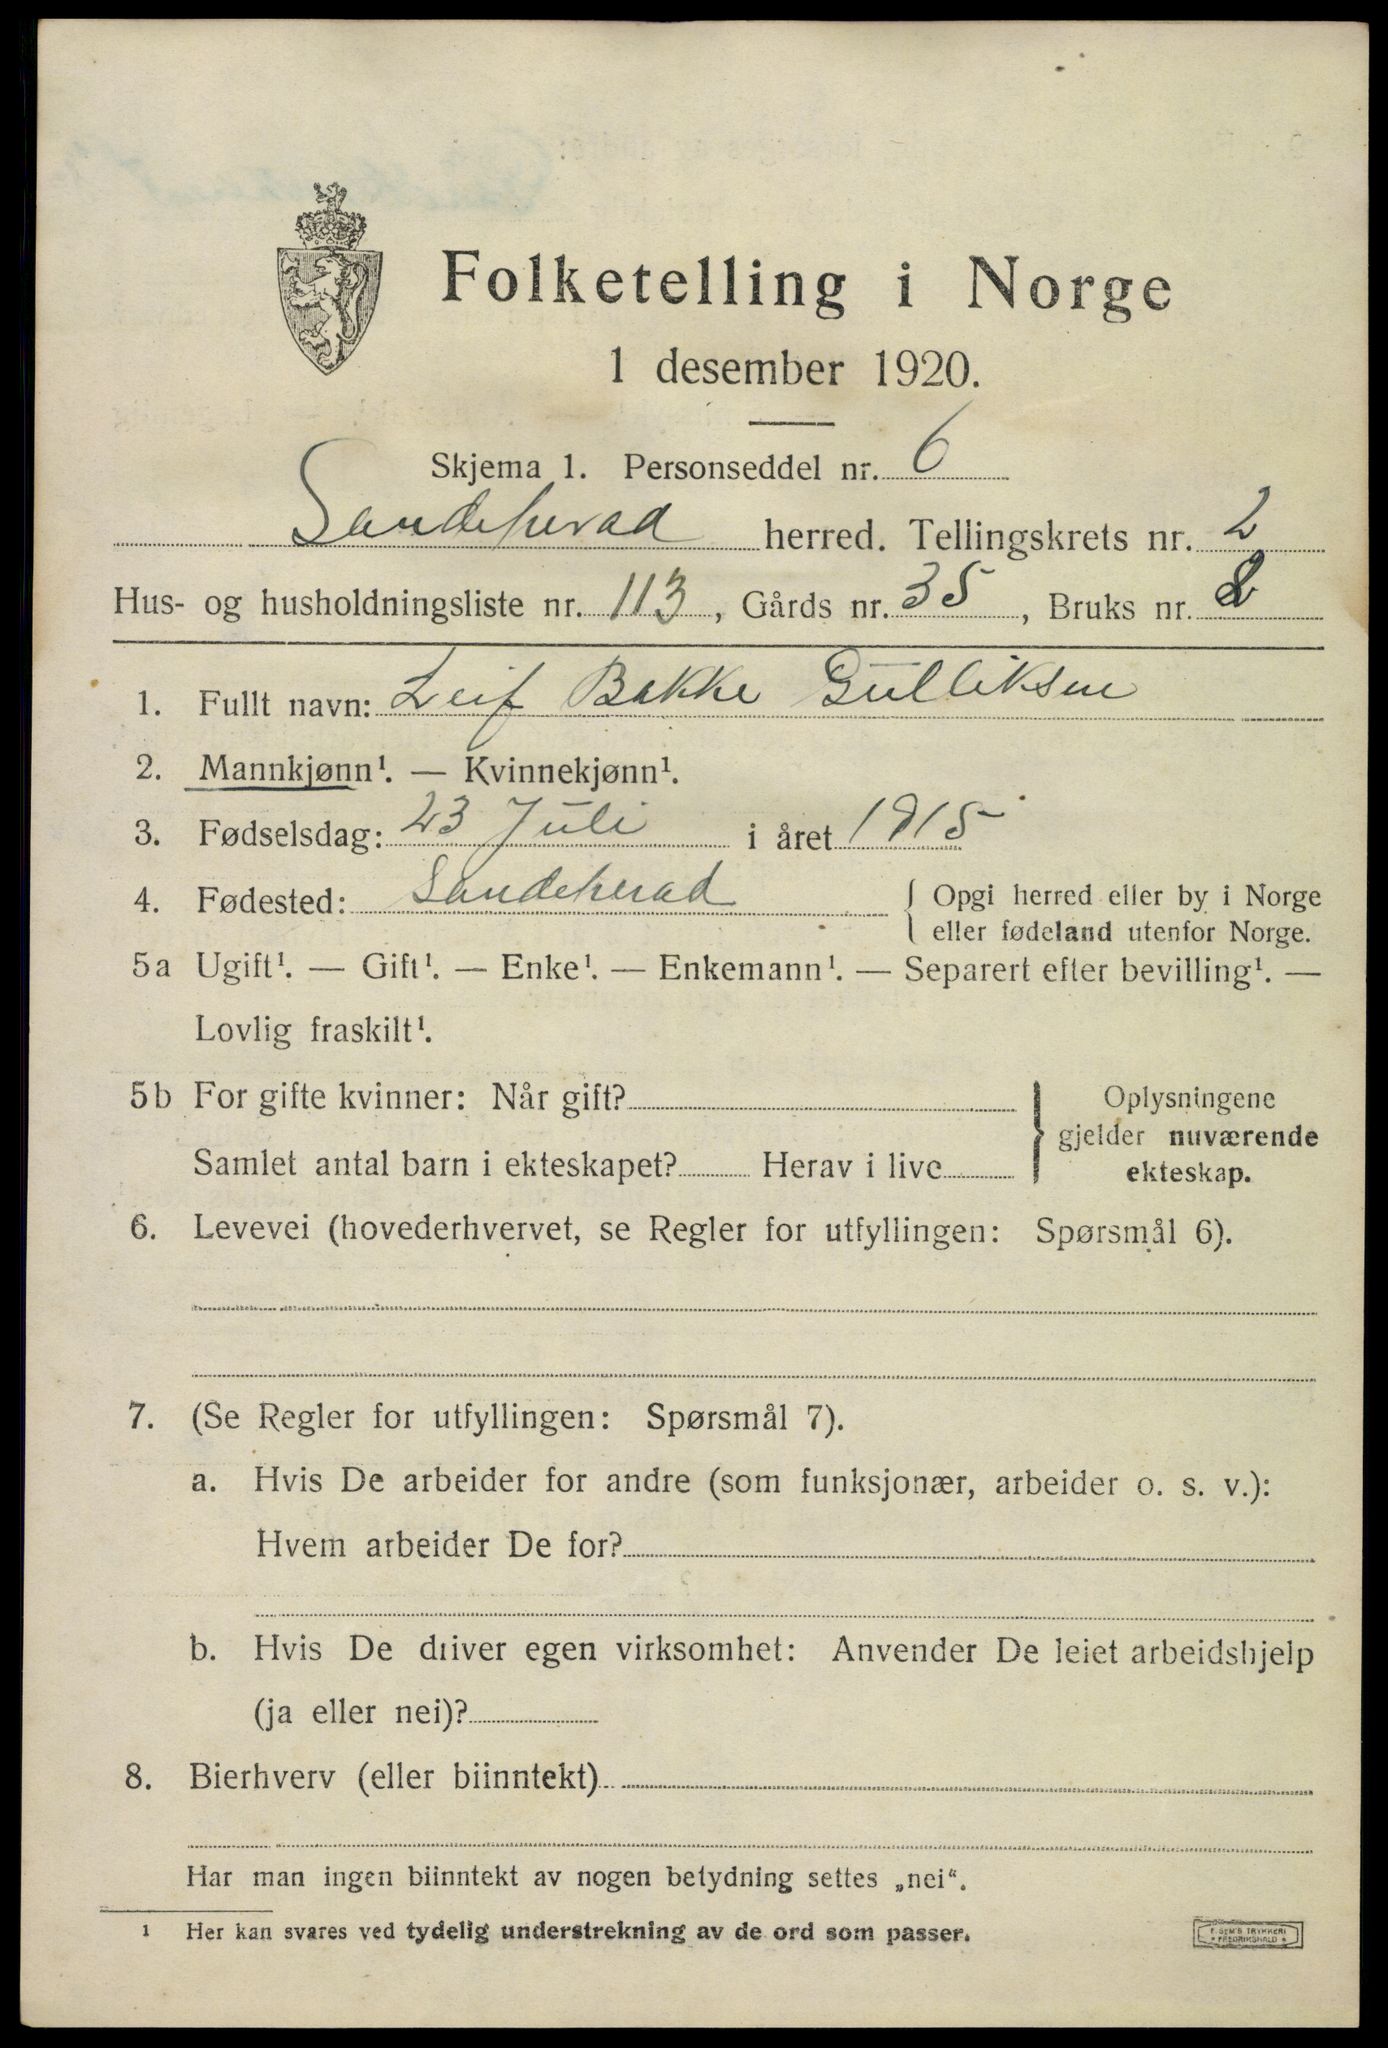 Folketelling i Norge
1 desember 1920.
Skjema 1. Personseddel nr. 6
Sandeherad herred. Tellingskrets nr. 2
Hus- og husholdningsliste nr. 113, Gårds nr. 35, Bruks nr.
1. Fullt navn: Leif Bakke Gulliksen
2. Mannkjønn¹. — Kvinnekjønn¹.
3. Fødselsdag: 23 Juli i året 1915
4. Fødested: Sandeherad { Opgi herred eller by i Norge
eller fødeland utenfor Norge.
5a Ugift¹. — Gift¹. — Enke¹. — Enkemann¹. — Separert efter bevilling¹. —
Lovlig fraskilt¹.
5b For gifte kvinner: Når gift?
Samlet antal barn i ekteskapet? Herav i live
} Oplysningene
gjelder nuværende
ekteskap.
6. Levevei (hovederhvervet, se Regler for utfyllingen: Spørsmål 6).
7. (Se Regler for utfyllingen: Spørsmål 7).
a. Hvis De arbeider for andre (som funksjonær, arbeider o. s. v.):
Hvem arbeider De for?
b. Hvis De driver egen virksomhet: Anvender De leiet arbeidshjelp
(ja eller nei)?
8. Bierhverv (eller biinntekt)
Har man ingen biinntekt av nogen betydning settes „nei“.
¹ Her kan svares ved tydelig understrekning av de ord som passer.
F. SEM'S TRYKKERI
* FREDRIKSHALD *